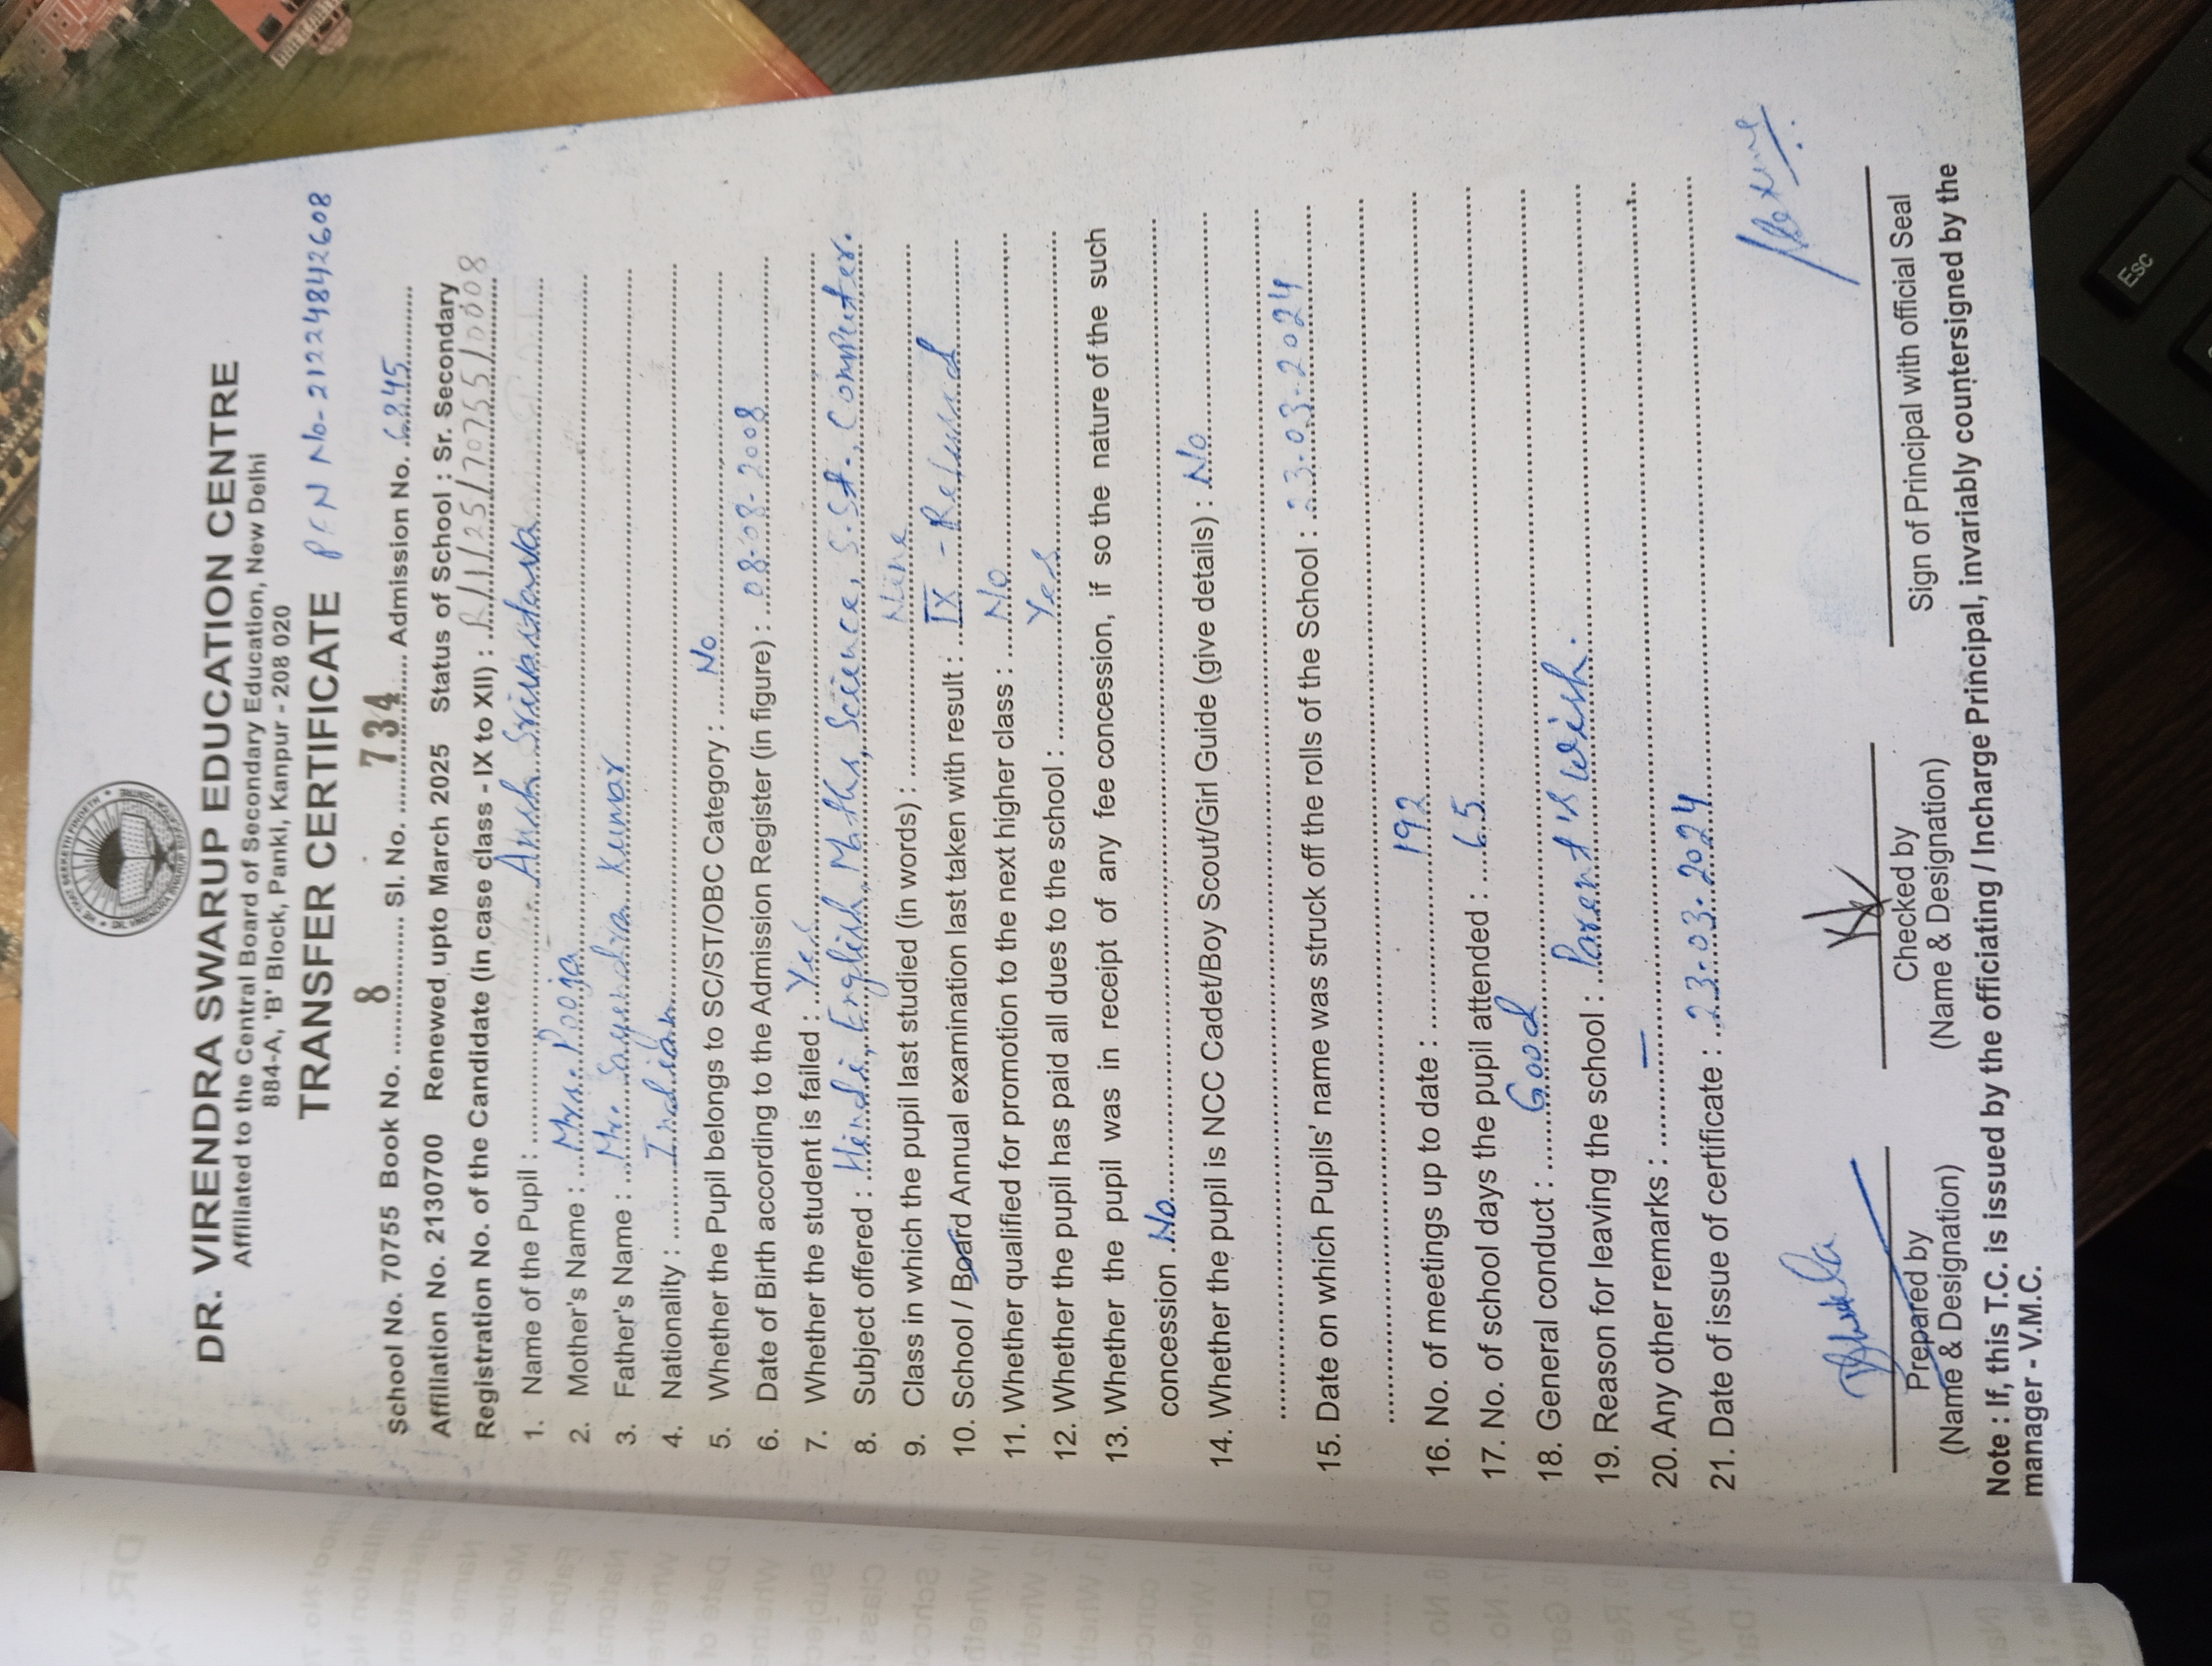 DR. VIRENDRA SWARUP EDUCATION CENTRE
Affiliated to the Central Board of Secondary Education, New Delhi
884-A, 'B' Block, Panki, Kanpur - 208 020
TRANSFER CERTIFICATE PEN No-21224842608
School No. 70755 Book No. 8 Sl. No. 734 Admission No. 6845
Affiliation No. 2130700 Renewed upto March 2025 Status of School : Sr. Secondary
Registration No. of the Candidate (in case class - IX to XII) : R/1/25/70755/0008
1. Name of the Pupil : Ansh Srivastava
2. Mother's Name : Mrs. Pooja
3. Father's Name : Mr. Kumar
4. Nationality : Indian
5. Whether the Pupil belongs to SC/ST/OBC Category : No
6. Date of Birth according to the Admission Register (in figure) : 08-08-2008
7. Whether the student is failed : Yes
8. Subject offered : Hindi, English, Maths, Science, S.St., Computer.
9. Class in which the pupil last studied (in words) : Nine
10. School / Board Annual examination last taken with result : IX -
11. Whether qualified for promotion to the next higher class : No
12. Whether the pupil has paid all dues to the school : Yes
13. Whether the pupil was in receipt of any fee concession, if so the nature of the such
concession No
14. Whether the pupil is NCC Cadet/Boy Scout/Girl Guide (give details) : No
15. Date on which Pupils' name was struck off the rolls of the School : 23.03.2024
16. No. of meetings up to date : 192
17. No. of school days the pupil attended : 65
18. General conduct : Good
19. Reason for leaving the school : Parent's wish.
20. Any other remarks : —
21. Date of issue of certificate : 23.03.2024
Prepared by Checked by Sign of Principal with official Seal
(Name & Designation) (Name & Designation)
Note : If, this T.C. is issued by the officiating / Incharge Principal, invariably countersigned by the
manager - V.M.C.
Esc